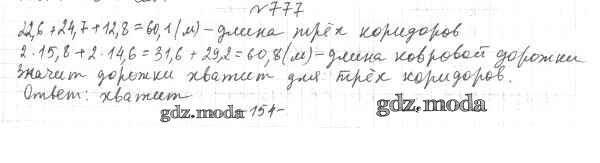 №777
22,6+24,7+12,8=60,1(м)-длина трёх коридоров
2·15,8+2·14,6=31,6+29,2=60,8(м)-длина ковровой дорожки
Значит дорожки хватит для трёх коридоров.
Ответ: хватит
gdz.moda -154- gdz.moda